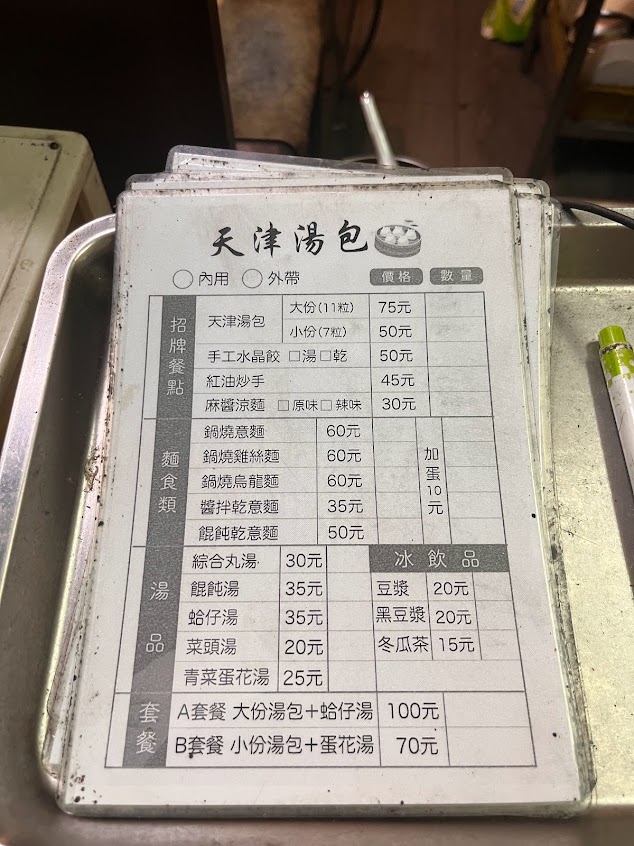 天津湯包
內用 外帶 價格 數量
招牌餐點
天津湯包 大份(11粒) 75元
小份(7粒) 50元
手工水晶餃 □湯□乾 50元
紅油炒手 45元
麻醬涼麵 □原味□辣味 30元
麵食類
鍋燒意麵 60元
鍋燒雞絲麵 60元
鍋燒烏龍麵 60元
醬拌乾意麵 35元
餛飩乾意麵 50元
加蛋10元
湯品
綜合丸湯 30元
餛飩湯 35元
蛤仔湯 35元
菜頭湯 20元
青菜蛋花湯 25元
冰飲品
豆漿 20元
黑豆漿 20元
冬瓜茶 15元
套餐
A套餐 大份湯包+蛤仔湯 100元
B套餐 小份湯包+蛋花湯 70元